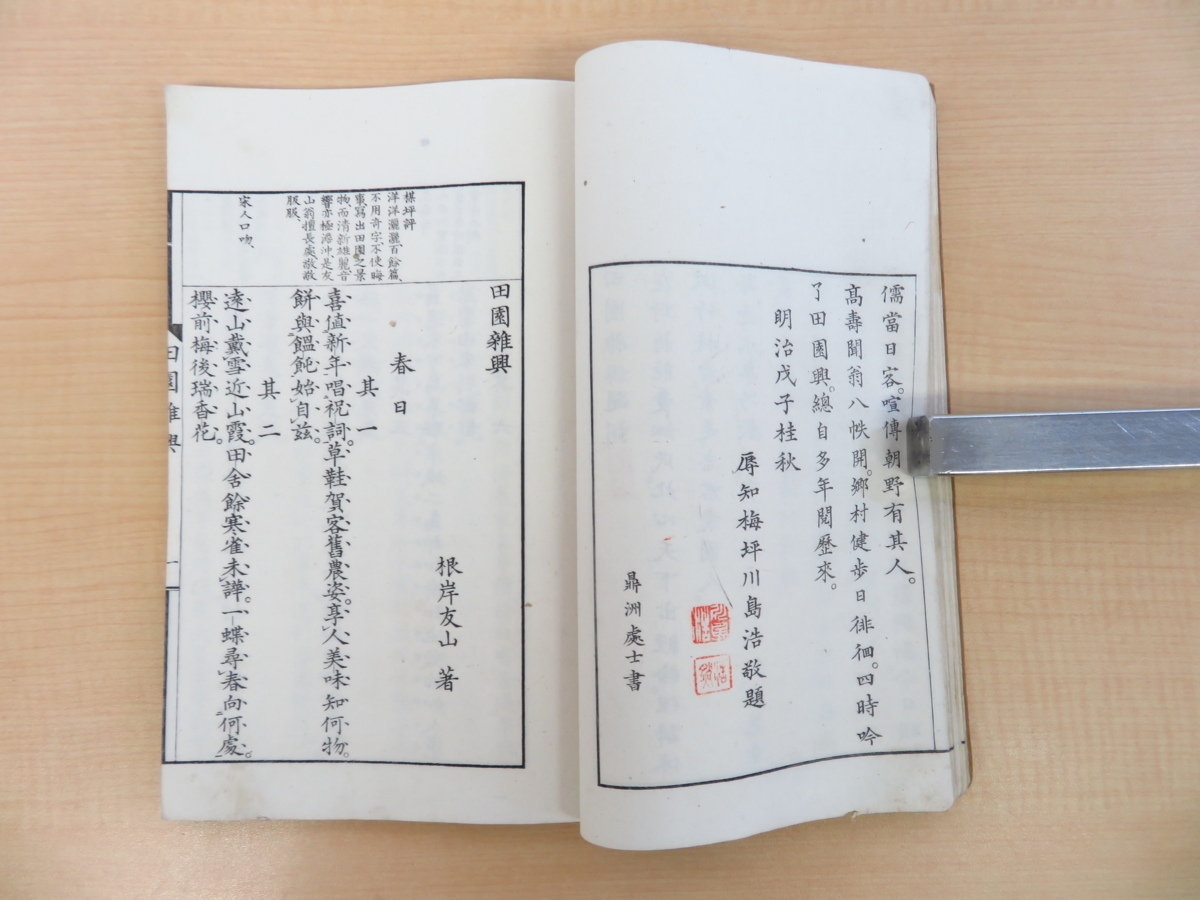 儒當日客。喧傳朝野有其人。
高壽聞翁八帙開。鄉村健步日徘徊。四時吟
了田園興。總自多年閱歷來。
明治戊子桂秋
辱知梅坪川島浩敬題
鼎洲處士書
田園雜興
根岸友山 著
春日
其一
喜值新年唱祝詞。草鞋賀客舊農姿。享人美味知何物。
餅與饂飩始自茲。
其二
遠山戴雪近山霞。田舍餘寒雀未譁。一蝶尋春向何處。
櫻前梅後瑞香花。
楳坪評
洋洋灑灑百餘篇、
不用奇字、不使晦
事、寫出田園之景
物、而清新雄麗、音
響亦極
山翁擅長處、敬敬
服服、
宋人口吻、
田園雜興
一